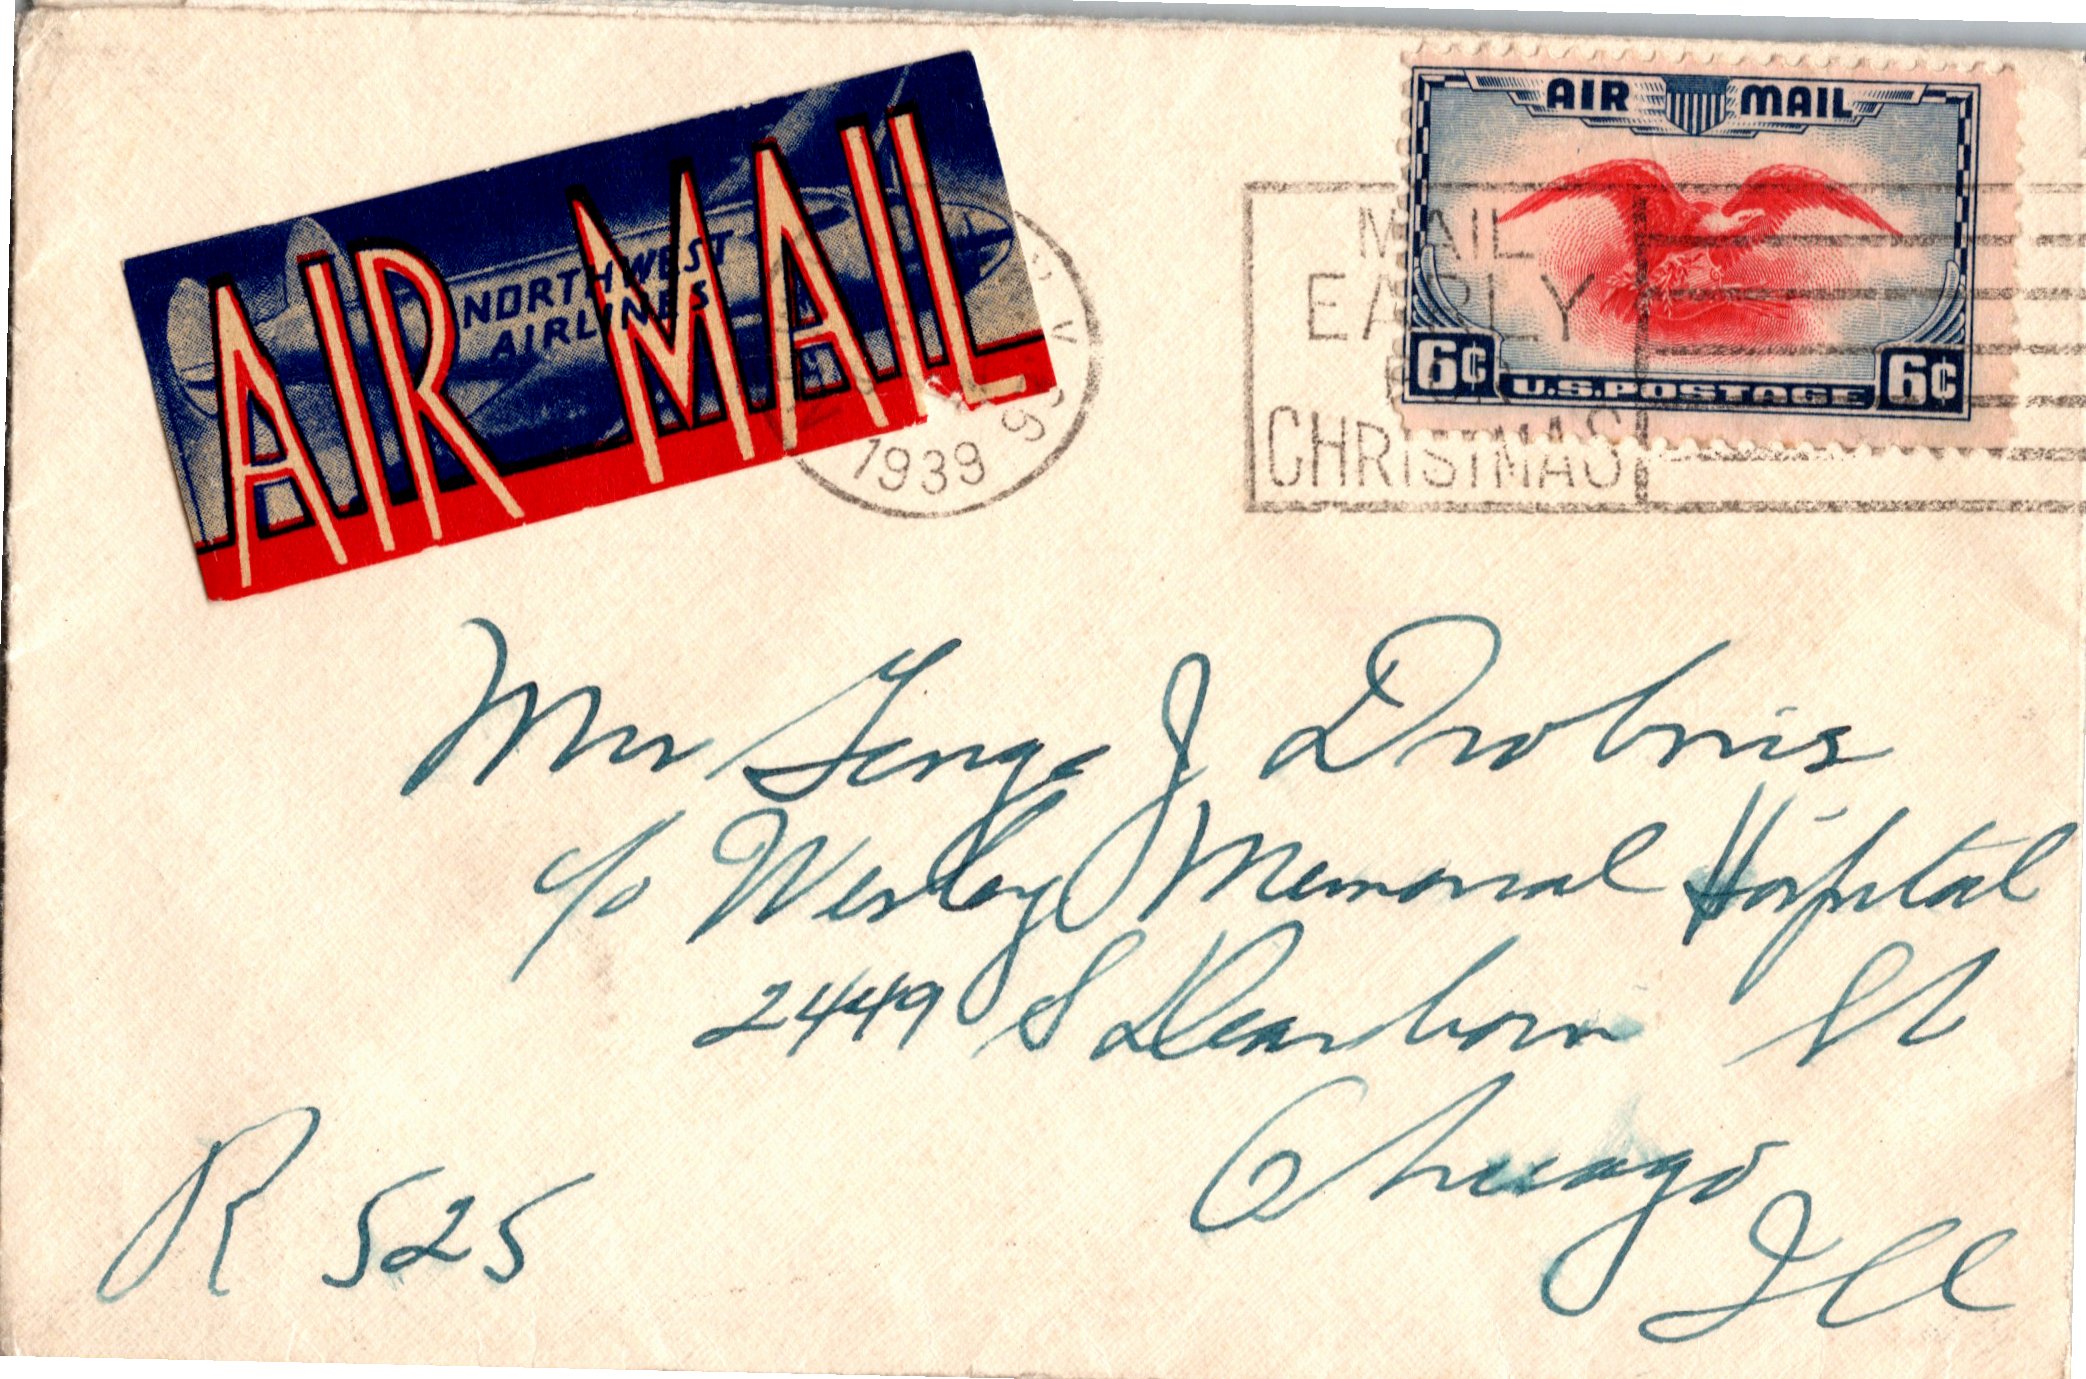 AIR MAIL
NORTHWEST
AIRLINES
1939
AIR MAIL
6¢ U.S.POSTAGE 6¢
MAIL
EARLY
FOR
CHRISTMAS
Mr George J Drobnis
c/o Wesley Memorial Hospital
2449 S Dearborn St
Chicago
Ill
R 525